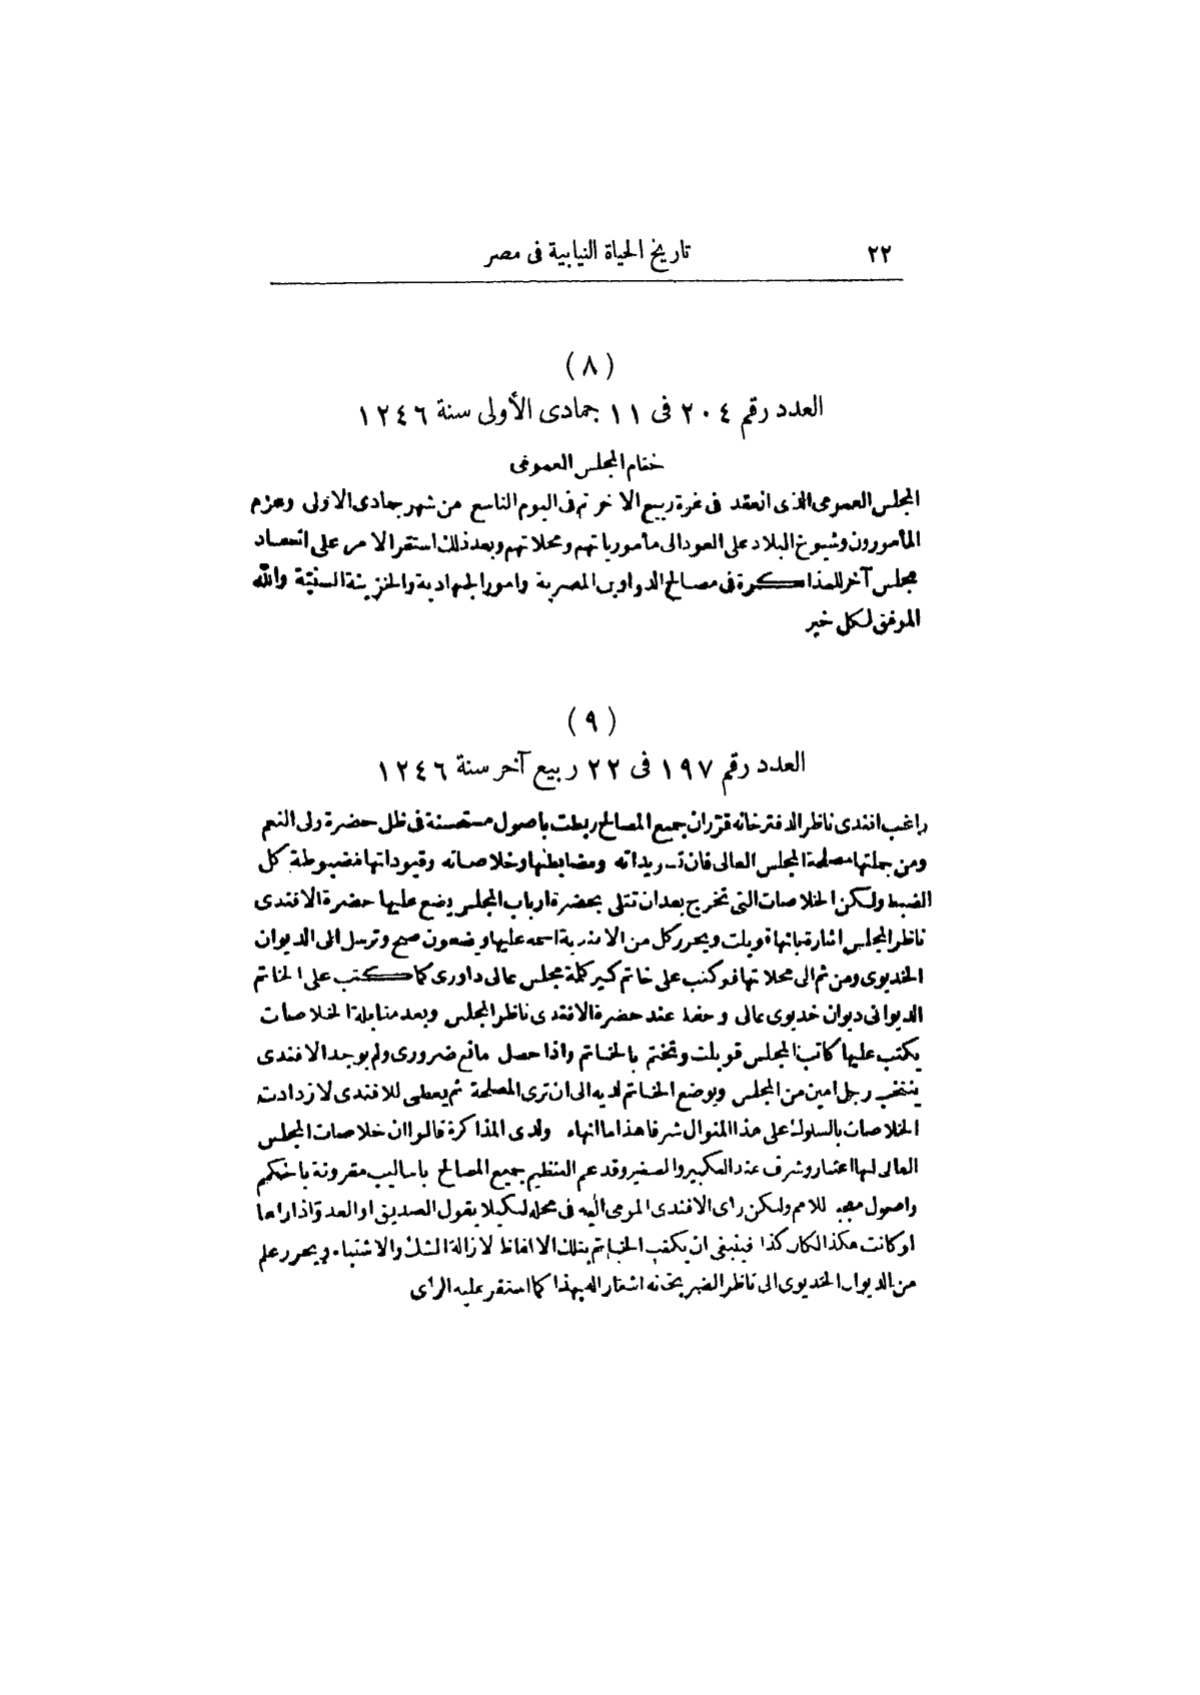 ٢٢ تاريخ الحياة النيابية فى مصر
(٨)
العدد رقم ٢٠٤ فى ١١ جمادى الأولى سنة ١٢٤٦
ختام المجلس العمومى
المجلس العمومى الذى انعقد فى غرة ربيع الاخر تم فى اليوم التاسع من شهر جمادى الاولى وعزم
المأمورون وشيوخ البلاد على العود الى مأمورياتهم ومحلاتهم وبعد ذلك استقر الامر على انعقاد
مجلس آخر للمذاكرة فى مصالح الدواوين المصرية وامور الجهادية والخزينة السنيّة والله
الموفق لكل خير
(٩)
العدد رقم ١٩٧ فى ٢٢ ربيع آخر سنة ١٢٤٦
راغب افندى ناظر الدفترخانه قرّر ان جميع المصالح ربطت باصول مستحسنة فى ظل حضرة ولى النعم
ومن جملتها مصلحة المجلس العالى فان ومضابطها وخلاصاته وقيوداتها مضبوطة كل
الضبط ولكن الخلاصات التى تخرج بعد ان تتلى بحضرة ارباب المجلس يضع عليها حضرة الافندى
ناظر المجلس اشارة بانها قوبلت ويحرر كل من الافندية اسمه عليها ويضعون صح وترسل الى الديوان
الخديوى ومن ثم الى محلاتها فلو كتب على خاتم كبير كلمة مجلس عالى داورى كما كتب على الخاتم
الديوانى ديوان خديوى عالى وحفظ عند حضرة الافندى ناظر المجلس وبعد مقابلة الخلاصات
يكتب عليها كاتب المجلس قوبلت وتختم بالخاتم واذا حصل مانع ضرورى ولم يوجد الافندى
ينتخب رجل امين من المجلس ويوضع الخاتم لديه الى ان ترى المصلحة ثم يعطى للافندى لازدادت
الخلاصات بالسلوك على هذا المنوال شرفا هذا ما انهاه ولدى المذاكرة قالوا ان خلاصات المجلس
العالى لها اعتبار وشرف عند الكبير والصغير وقد عم التنظيم جميع المصالح باساليب مقرونة بالحكم
واصول للامم ولكن راى الافندى المومى اليه فى محله لكيلا يقول الصديق او العدوّ اذا راها
او كانت هكذا لكان كذا فينبغى ان يكتب الخاتم بتلك الالفاظ لازالة الشك والاشتباه ويحرر علم
من الديوان الخديوى الى ناظر الضربخانه اشعارا له بهذا كما استقر عليه الرأى